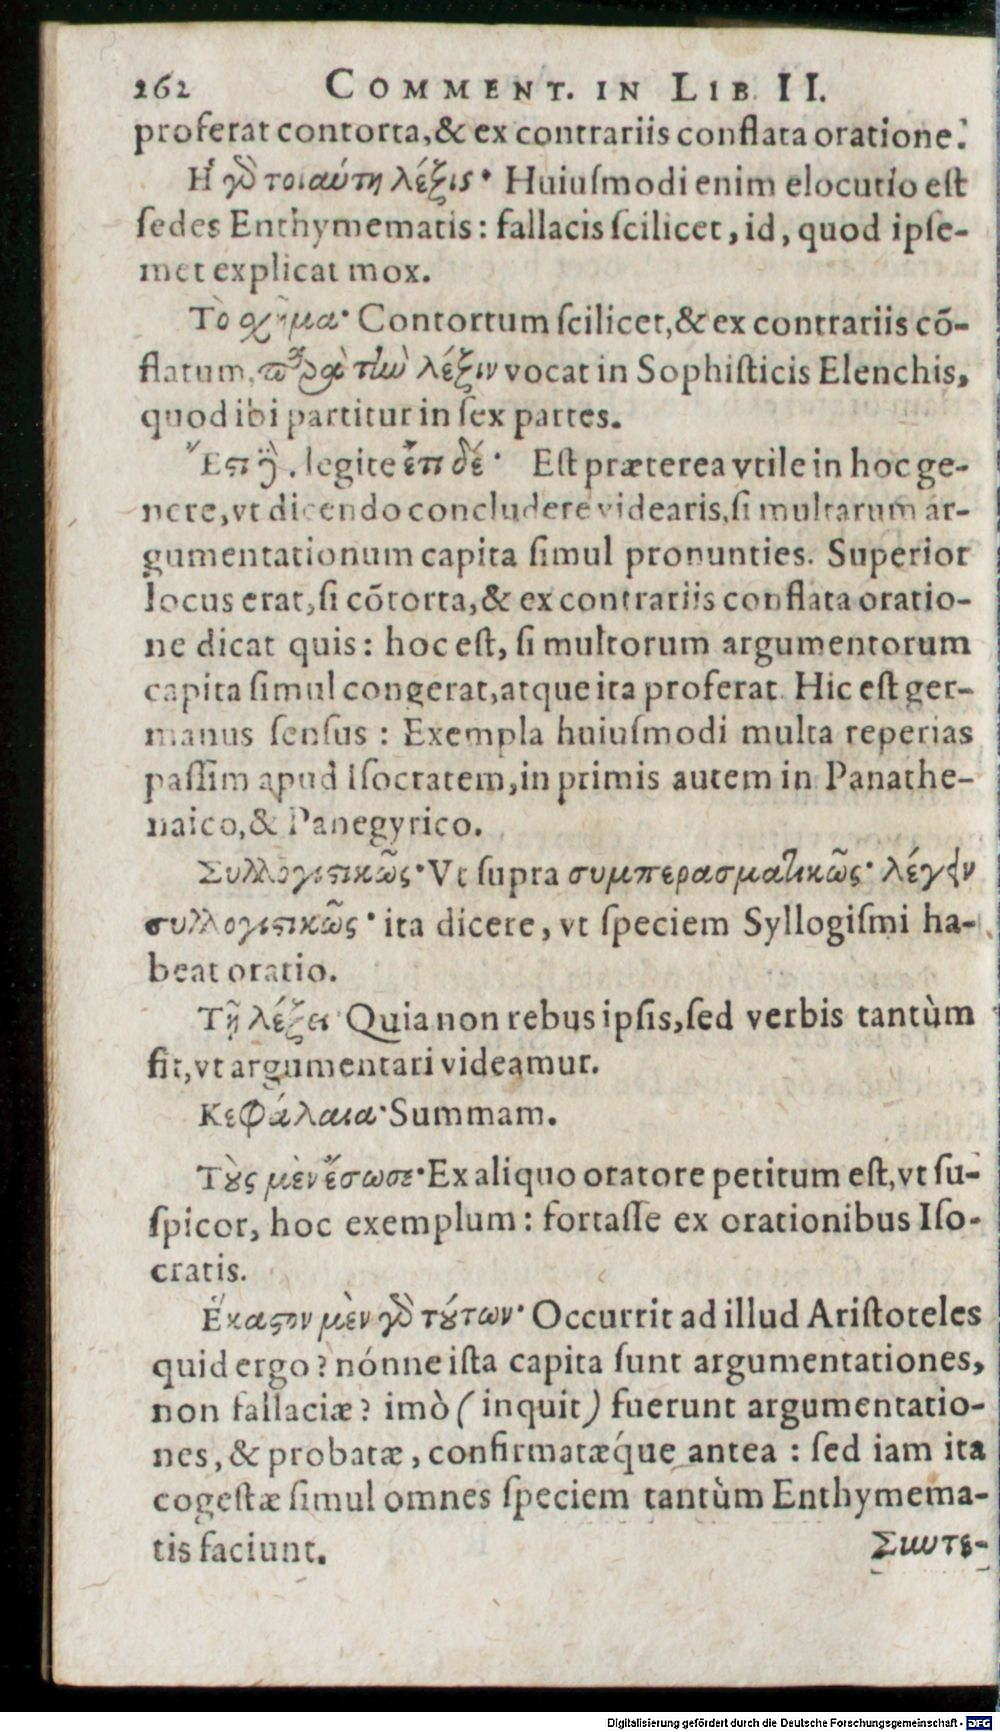 262 COMMENT. IN LIB II.
proferat contorta, & ex contrariis conflata oratione.
Ἡ γὸ τοιαύτη λέξις· Huiuſmodi enim elocutio eſt
ſedes Enthymematis: fallacis ſcilicet, id, quod ipſe-
met explicat mox.
Τὸ σχῆμα· Contortum ſcilicet, & ex contrariis cō-
flatum, παρὰ τὴν λέξιν vocat in Sophiſticis Elenchis,
quod ibi partitur in ſex partes.
Ἔτι ἢ, legite ἔτι δέ· Eſt præterea vtile in hoc ge-
nere, vt dicendo concludere videaris, ſi multarum ar-
gumentationum capita ſimul pronunties. Superior
locus erat, ſi cōtorta, & ex contrariis conflata oratio-
ne dicat quis: hoc eſt, ſi multorum argumentorum
capita ſimul congerat, atque ita proferat. Hic eſt ger-
manus ſenſus: Exempla huiuſmodi multa reperias
paſſim apud Iſocratem, in primis autem in Panathe-
naico, & Panegyrico.
Συλλογιστικῶς· Vt ſupra συμπερασματικῶς· λέγειν
συλλογιστικῶς· ita dicere, vt ſpeciem Syllogiſmi ha-
beat oratio.
Τῇ λέξει· Quia non rebus ipſis, ſed verbis tantùm
fit, vt argumentari videamur.
Κεφάλαια· Summam.
Τοὺς μὲν ἔσωσε· Ex aliquo oratore petitum eſt, vt ſu-
ſpicor, hoc exemplum: fortaſſe ex orationibus Iſo-
cratis.
Ἕκαστον μὲν γὸ τούτων· Occurrit ad illud Ariſtoteles
quid ergo? nónne iſta capita ſunt argumentationes,
non fallaciæ? imò (inquit) fuerunt argumentatio-
nes, & probatæ, confirmatæque antea: ſed iam ita
cogeſtæ ſimul omnes ſpeciem tantùm Enthymema-
tis faciunt.
Συντε-
Digitalisierung gefördert durch die Deutsche Forschungsgemeinschaft - DFG